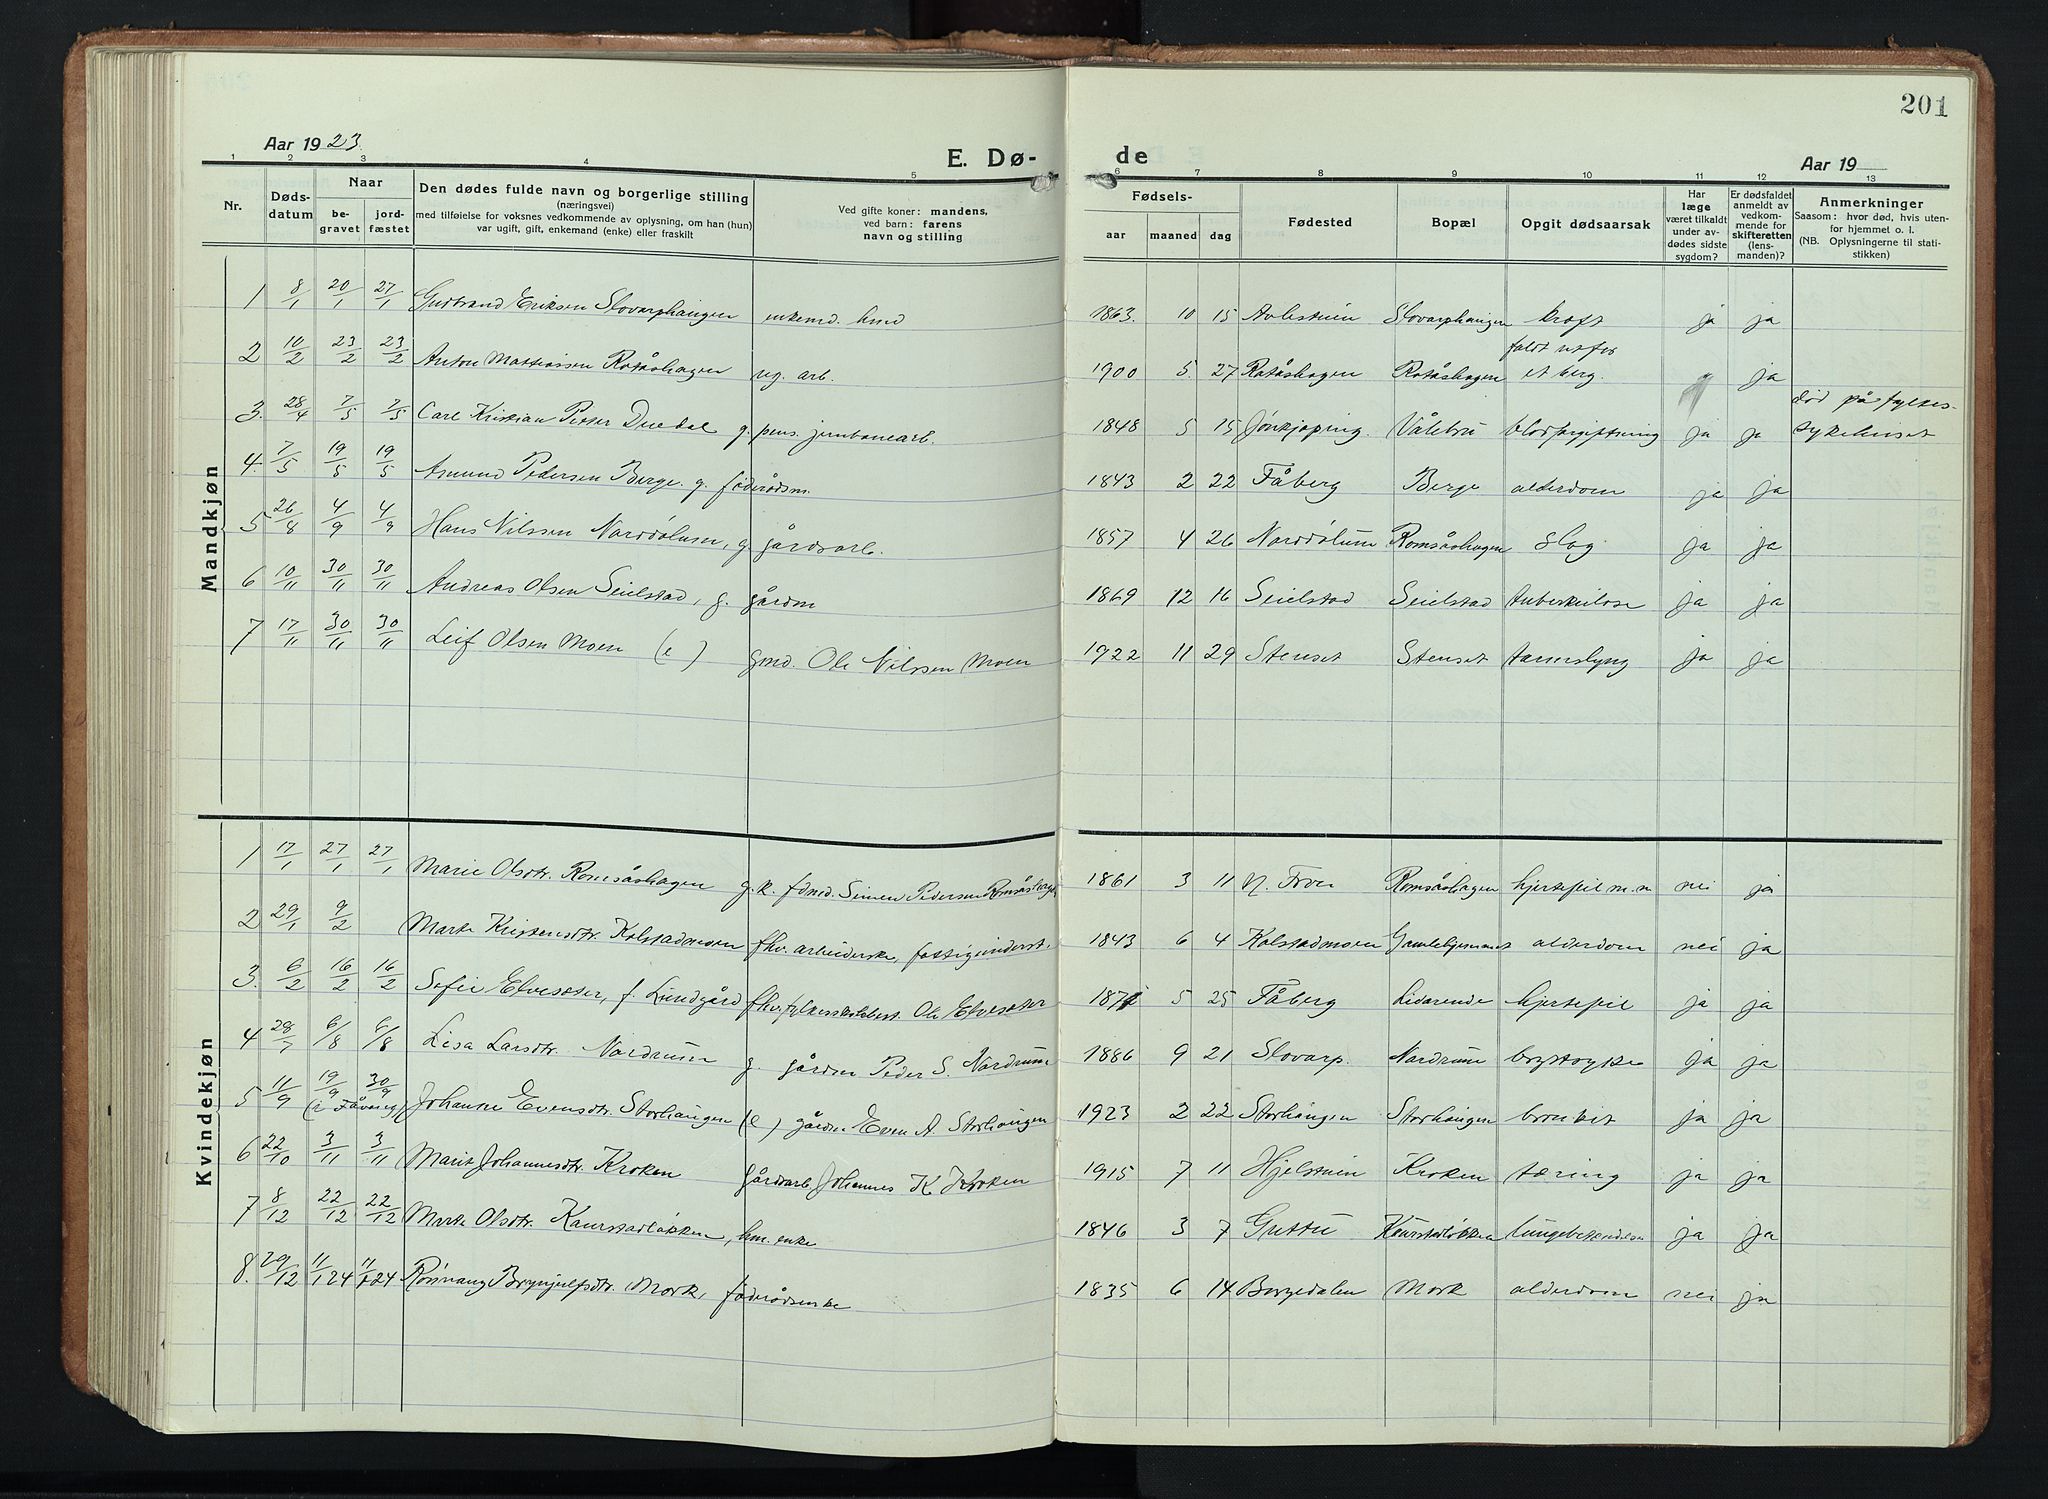 201
Aar 1923.
E. Dø-
de
Aar 19
1 2 3 4 5 6 7 8 9 10 11 12 13
Nr.
Døds-
datum
Naar
be-
gravet
jord-
fæstet
Den dødes fulde navn og borgerlige stilling
(næringsvei)
med tilføielse for voksnes vedkommende av oplysning, om han (hun)
var ugift, gift, enkemand (enke) eller fraskilt
Ved gifte koner: mandens,
ved barn: farens
navn og stilling
Fødsels-
aar maaned dag
Fødested
Bopæl
Opgit dødsaarsak
Har
læge
været tilkaldt
under av-
dødes sidste
sygdom?
Er dødsfaldet
anmeldt av
vedkom-
mende for
skifteretten
(lens-
manden)?
Anmerkninger
Saasom: hvor død, hvis uten-
for hjemmet o. l.
(NB. Oplysningerne til stati-
stikken)
Mandkjøn
1 8/1 20/1 27/1 Gudbrand Eriksen Slovarphaugen enkemd. hmd 1863. 10 15 Slovarphaugen kræft ja ja
2 10/2 23/2 23/2 Anton Mattiassen Rotåshagen ug. arb. 1900 5 27 Rotåshagen Rotåshagen faldt utfor
et berg. ja
3. 28/4 7/5 7/5 Carl Kristian Petter Duedal g. pens. jernbanearb. 1848 5 15 Jønkjøping. Vålebru blodforgiftning ja ja død på fylkes-
sykehuset
4. 7/5 19/5 19/5 Amund Pedersen Berge. g. føderådsm. 1843 2 22 Fåberg Berge alderdom ja ja
5 26/8 4/9 4/9 Hans Nilssen Norddølum, g. gårdsarb. 1857 4 26 Norddølum Romsåshagen Slag ja ja
6 10/11 30/11 30/11 Andreas Olsen Seielstad, g. gårdm 1869 12 16 Seielstad Seielstad tuberkulose ja ja
7 17/11 30/11 30/11 Leif Olsen Moen (e) gmd. Ole Nilssen Moen 1922 11 29 Stenset Stenset tarmslyng ja ja
Kvindekjøn
1 17/1 27/1 27/1 Marie Olsdtr. Romsåshagen g. k. fdmd. Simen Pedersen Romsåshagen 1861 3 11 N. Fron Romsåshagen hjertefeil m.m nei ja
2 29/1 9/2 Marte Kristensdtr. Kolstadmoen fhv. arbeiderske, fattigunderst. 1843 6 4 Kolstadmoen Gamlehjemmet alderdom nei ja
3. 6/2 16/2 16/2 Sofie Elvesæter, f. Lundgård fhv. fylkesskolebest. Ole Elvesæter 187 5 25 Fåberg Lidarende hjertefeil ja ja
4 28/7 6/8 6/8 Lisa Larsdtr. Nordrum g. gårdm Peder S. Nordrum 1886 9 21 Slovarp. Nordrum brystsyke ja ja
5 11/9 19/9 (i Fåvang) 30/9 Johanne Evensdtr. Storhaugen (e) gårdm Even A. Storhaugen 1923 2 22 Storhaugen Storhaugen bronkit ja ja
6 22/10 3/11 3/11 Marit Johannesdtr. Kroken gårdsarb. Johannes K. Kroken 1915 7 11 Hjelstuen Kroken tæring ja ja
7 8/12 22/12 22/12 Marte Olsdtr. Kaurstadløkken, hm. enke 1846 3 7 Guttu Kaurstadløkken lungebetændelse ja ja
8. 29/12 11/1 24 11/1 24 Rønnaug Brynjulfsdtr. Mork, føderådsenke 1835 6 14 Børgedalen Mork alderdom nei ja